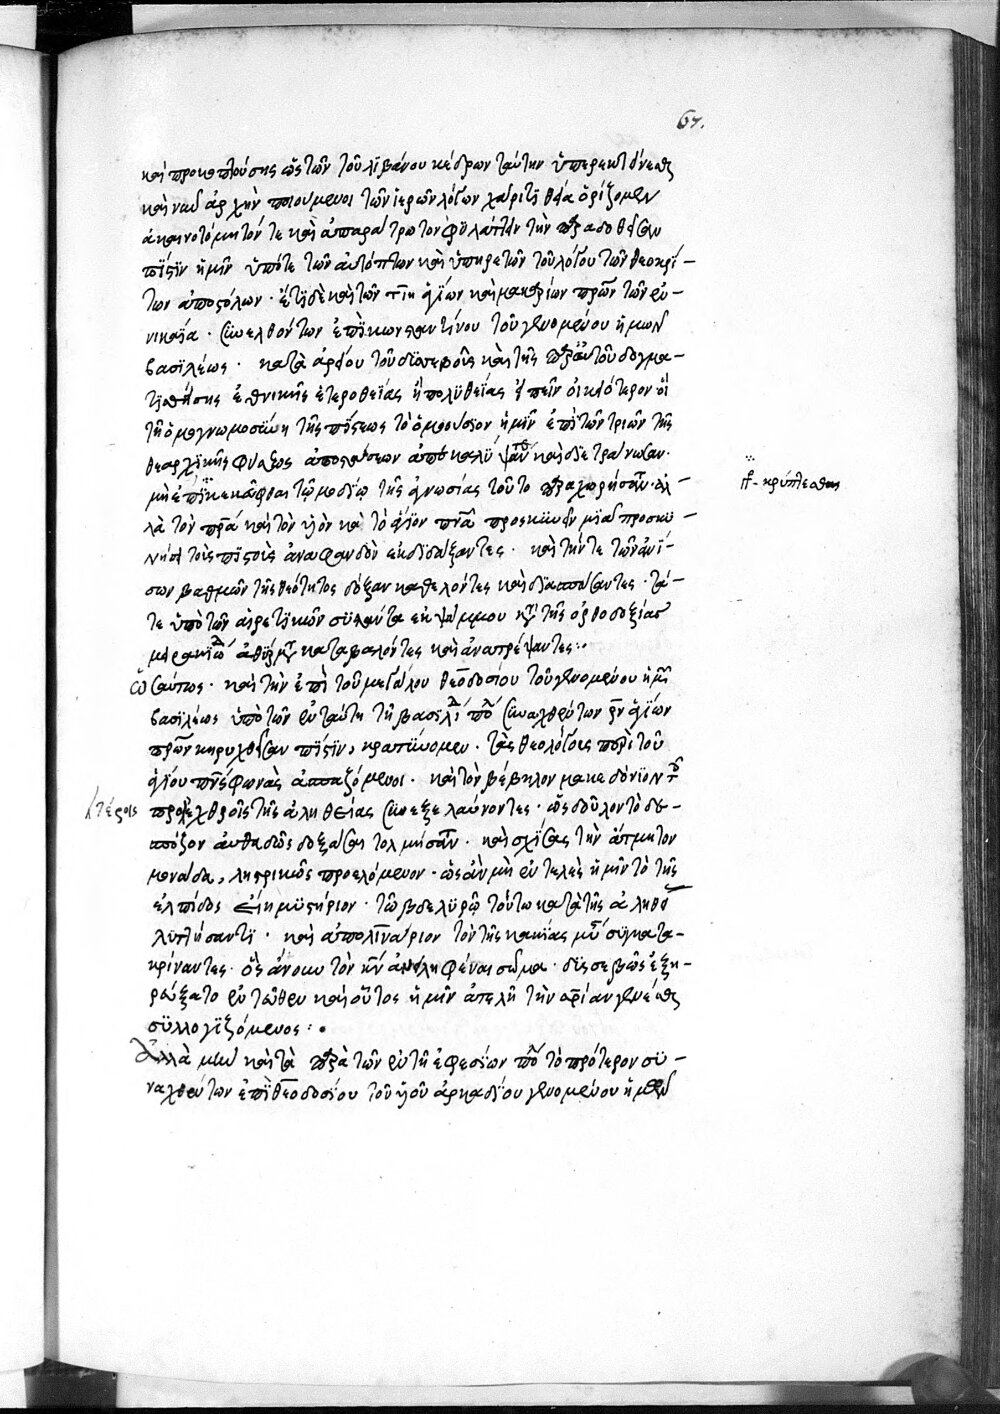 67.
καὶ προκοπτούσης ὡς τῶν τοῦ λιβάνου κέδρων ταύτην ὑπερεκτείνεσθαι
καὶ νῦν ἀρχὴν ποιούμενοι τῶν ἱερῶν λόγων χάριτι θεία ὁρίζομεν
ἀκαινοτόμητόν τε καὶ ἀπαράτρωτον φυλάττειν τὴν παραδοθεῖσαν
πίστιν ἡμῖν ὑπό τε τῶν αὐτόπτων καὶ ὑπηρετῶν τοῦ λόγου τῶν θεοκρί-
των ἀποστόλων. ἔτι δὲ καὶ τῶν τιη ἁγίων καὶ μακαρίων πρων τῶν ἐν
νικαία. συνελθόντων ἐπὶ κωνσταντίνου τοῦ γενομένου ἡμῶν
βασιλέως. κατὰ ἀρείου τοῦ δυσσεβοῦς καὶ τῆς παρ' αὐτοῦ δογμα-
τισθείσης ἐθνικῆς ἑτεροθεΐας ἢ πολυθεΐας εἰπεῖν οἰκειότερον οἳ
τῆ ὁμογνωμοσύνη τῆς πίστεως τὸ ὁμοούσιον ἡμῖν ἐπὶ τῶν τριῶν τῆς
θεαρχικῆς φύσεως ὑποστάσεων ἀπεκάλυψάν τε καὶ διετράνωσαν.
μὴ ἐπικεκρύφθαι τῶ μοδίω τῆς ἀγνωσίας τοῦτο παραχωρήσαντες. ἀλ-
γρ- κρύπτεσθαι
λὰ τὸν πρα καὶ τὸν υἱὸν καὶ τὸ ἅγιον πνα προσκυνεῖν μιᾶ προσκυ-
νήσει τοὺς πιστοὺς ἀναφανδὸν ἐκδιδάξαντες. καὶ τήν τε τῶν ἀνί-
σων βαθμῶν τῆς θεότητος δόξαν καθελόντες καὶ διασπάσαντες. τά-
τε ὑπὸ τῶν αἱρετικῶν συστάντα ἐκ ψάμμου κατὰ τῆς ὀρθοδοξίας
μειρακιώδη ἀθύρματα καταβαλόντες καὶ ἀνατρέψαντες:
ὡσαύτως. καὶ τὴν ἐπὶ τοῦ μεγάλου θεοδοσίου τοῦ γενομένου ἡμῶν
βασιλέως ὑπὸ τῶν ἐν ταύτη τῆ βασιλίδι πόλει συναχθέντων ρν ἁγίων
πρων κηρυχθεῖσαν πίστιν, κρατύνομεν. τὰς θεολόγους περὶ τοῦ
ἁγίου πνς φωνὰς ἀσπαζόμενοι. καὶ τὸν βέβηλον μακεδόνιον τοῖς
προτέροις
ἐχθροῖς τῆς ἀληθείας συνεξελαύνοντες. ὡς δοῦλον τὸ δε-
σπόζον αὐθαδῶς δοξάσαι τολμήσαντα. καὶ σχίσαι τὴν ἄτμητον
μονάδα, ληστρικῶς προελόμενον. ὡς ἂν μὴ ἐντελὲς ἡμῖν τὸ τῆς
ἐλπίδος εἴη μυστήριον. τῶ βδελυρῶ τούτω κατὰ τῆς ἀληθείας
λυττήσαντι. καὶ ἀπολινάριον τὸν τῆς κακίας μύστην συγκατα-
κρίναντες. ὃς ἄνουν τὸν κν ἀνειληφέναι σῶμα. δυσσεβῶς ἐξη-
ρεύξατο ἐντεῦθεν καὶ οὗτος ἡμῖν ἀτελῆ τὴν σρίαν γενέσθαι
συλλογιζόμενος:
Ἀλλὰ μὴν καὶ τὰ παρὰ τῶν ἐν τῆ ἐφεσίων πόλει τὸ πρότερον συ-
ναχθέντων ἐπὶ θεοδοσίου τοῦ υἱοῦ ἀρκαδίου γενομένου ἡμῶν